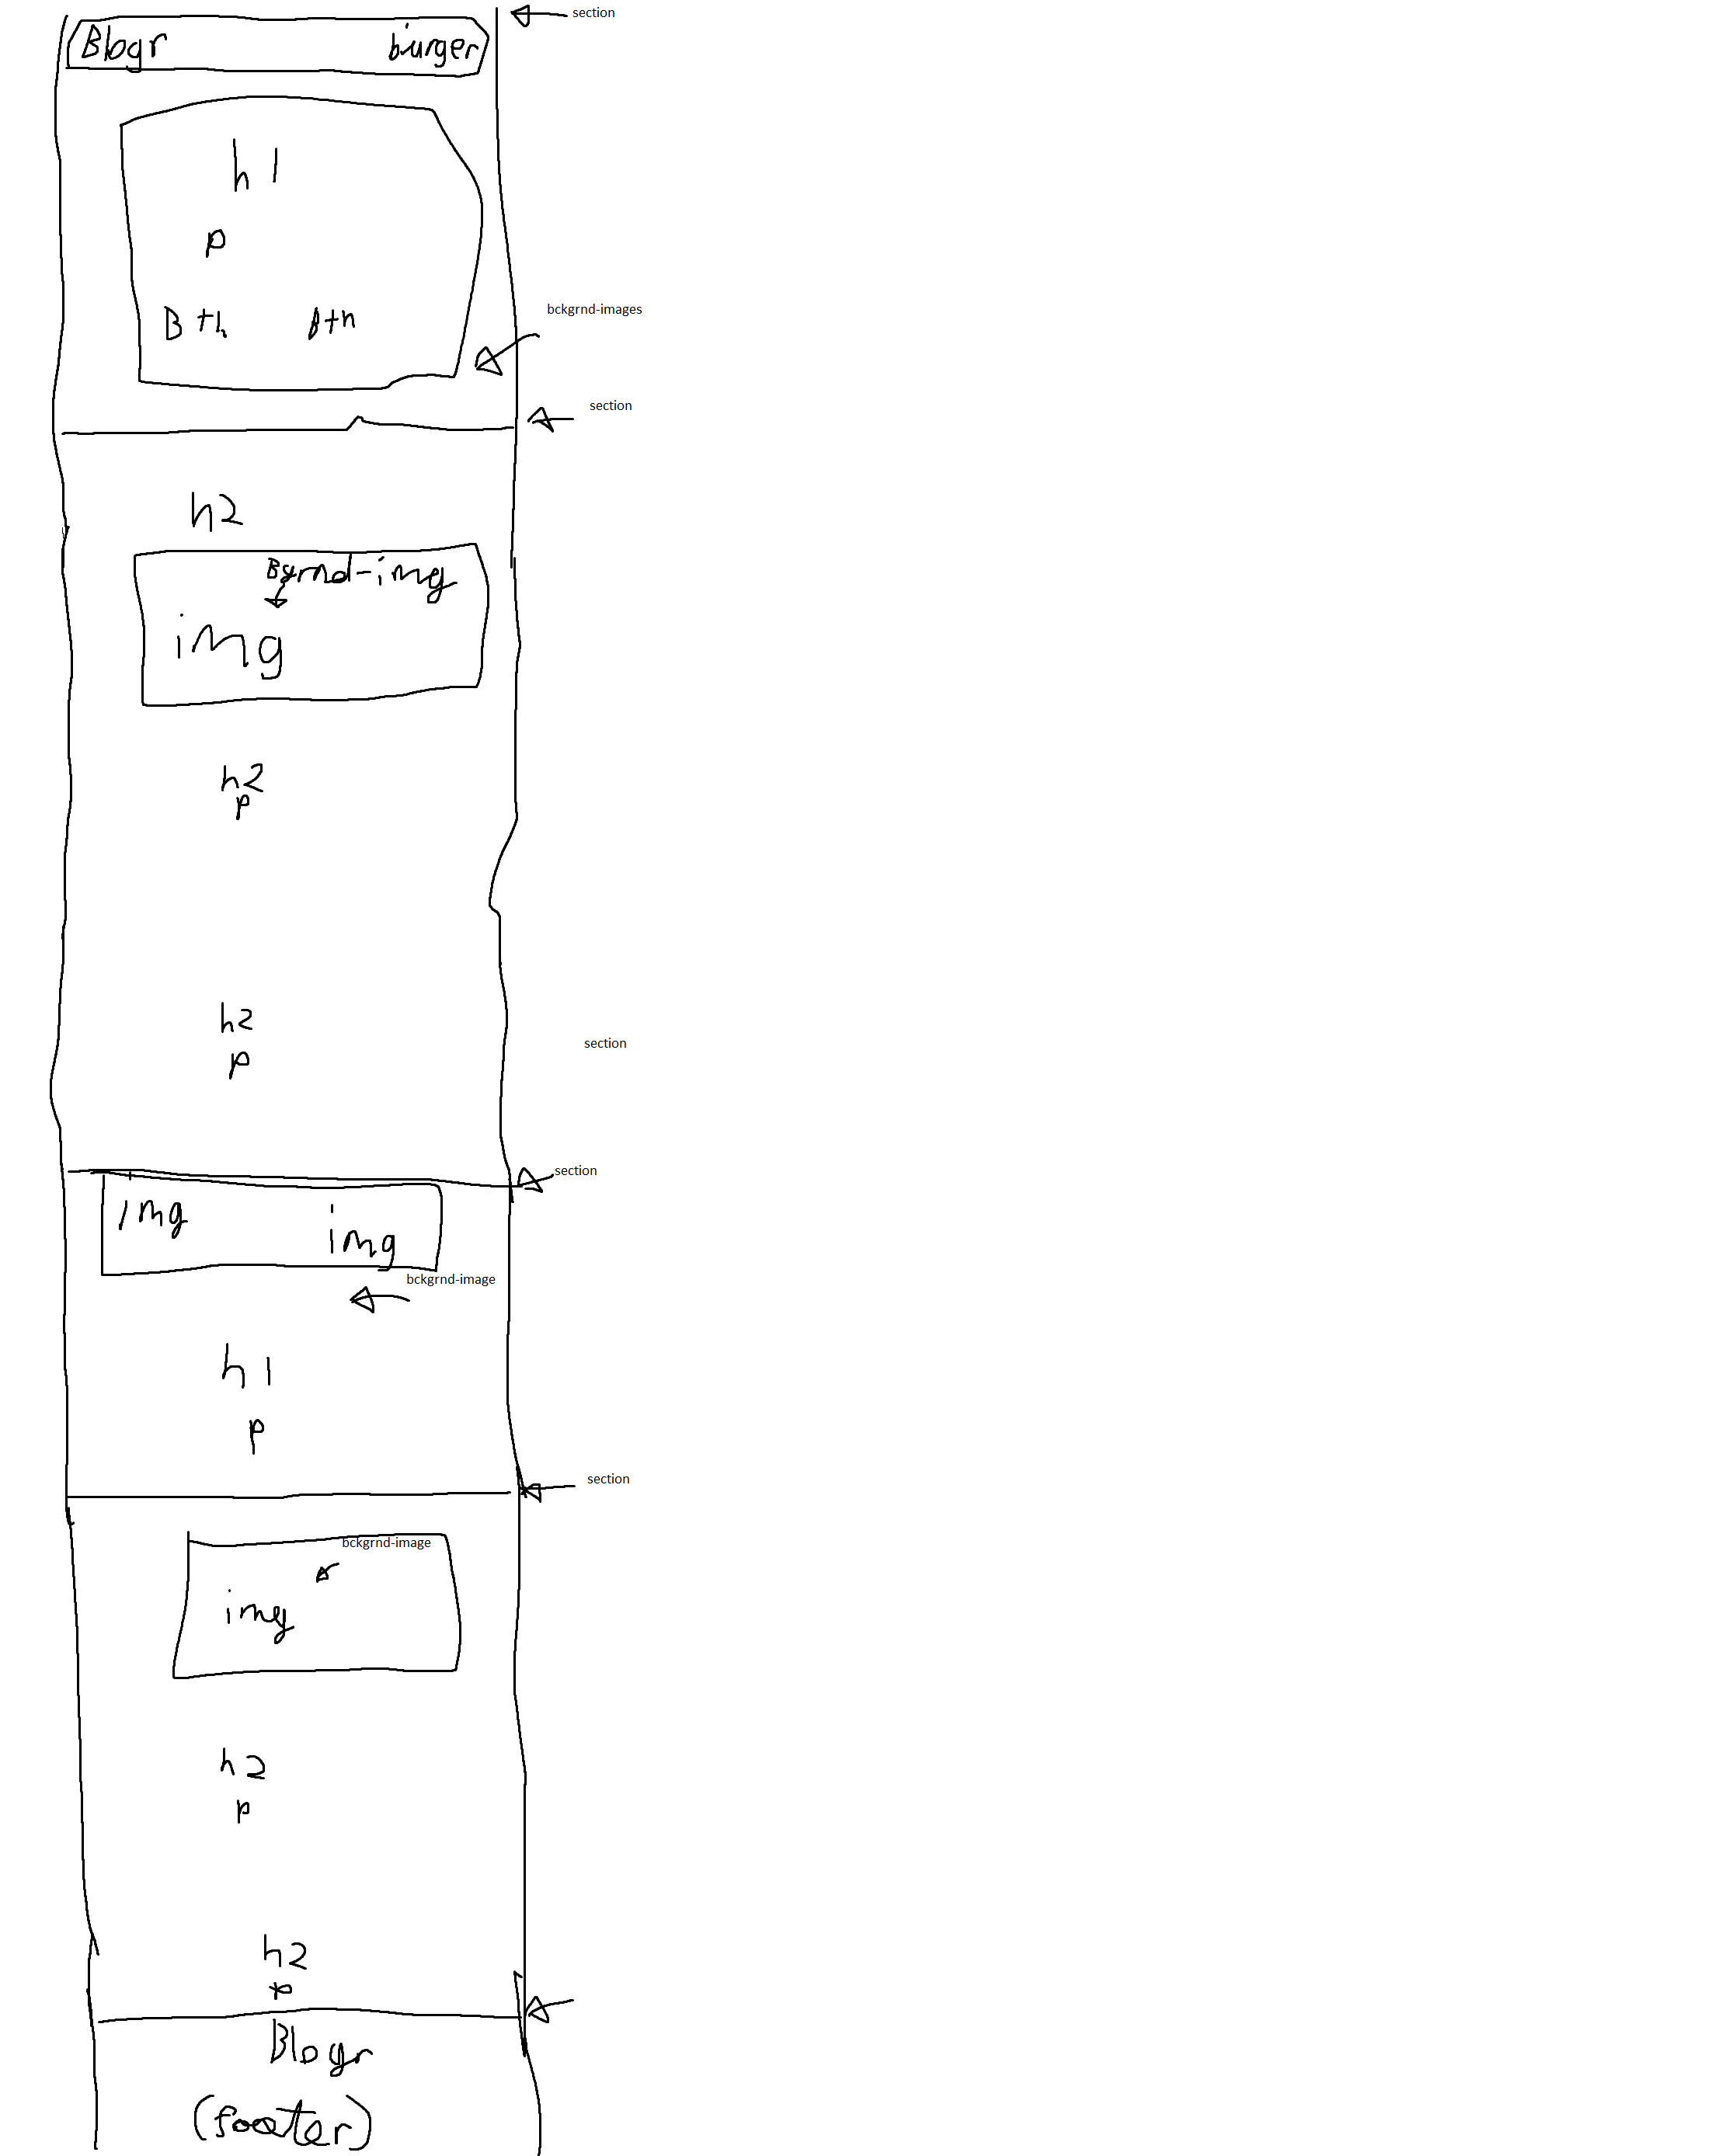 section
Blogr burger
h1
p
bckgrnd-images
Btn Btn
section
h2
Bgrnd-img
img
h2
p
h2
p
section
section
img img
bckgrnd-image
h1
p
section
bckgrnd-image
img
h2
p
h2
p
Blogr
(footer)